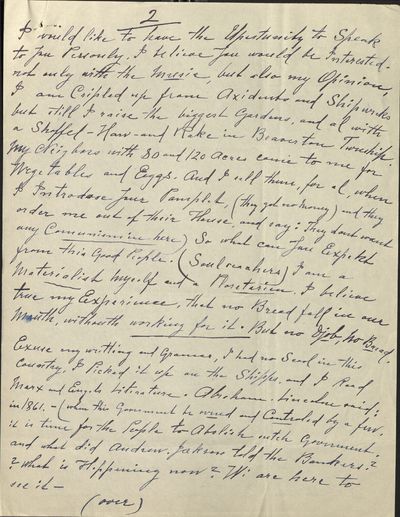 2
I would like to have the Upertunity to Speak
to You Personly. I believe You would be Interested.
not only with the Music, but also my Opinion,
I am Cripled up from Axidents and Shipwreks
but still I raise the biggest Gardens, and al with
a Shoffel-How-and Rake in Beaverton Township.
My Neighbors with 80 and 120 Acres come to me for
Vegetables and Eggs. And I tell them, for al, when
I Introduse Your Pamphlet, (They got no money) and they
order me out of their House, and say: They dont want
any Communisme here) So what can You Expeckt
from this Good People. (Soulsnachers) I am a
Materialist myself and a I believe
true my Experience, that no Bread fall in our
Mouth, withouth working for it. But no Job, No Bread.
Excuse my writting and Grammar, I had no Scool in this
Country. I Picked it up on the Shipps, and I Read
Marx and Engels Literature. Abraham Lincolne said;
in 1861. - (when this Government be owned and Controled by a few.
it is time for the People to Abolish such Government.
and what did Andrew Jackson told the Banckers?
? What is Happening now? We are here to
see it -
(over)